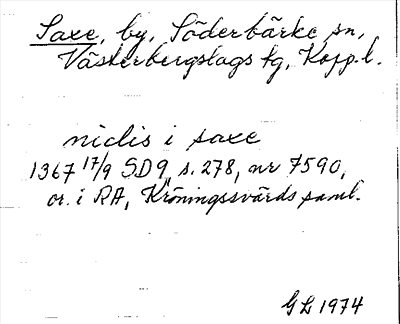 Saxe, by, Söderbärke sn,
Västerbergslags tg, Kopp.l.
niclis i saxe
1367 17/9 SD9, s. 278, nr 7590,
or. i RA, Kröningssvärds saml.
GL 1974